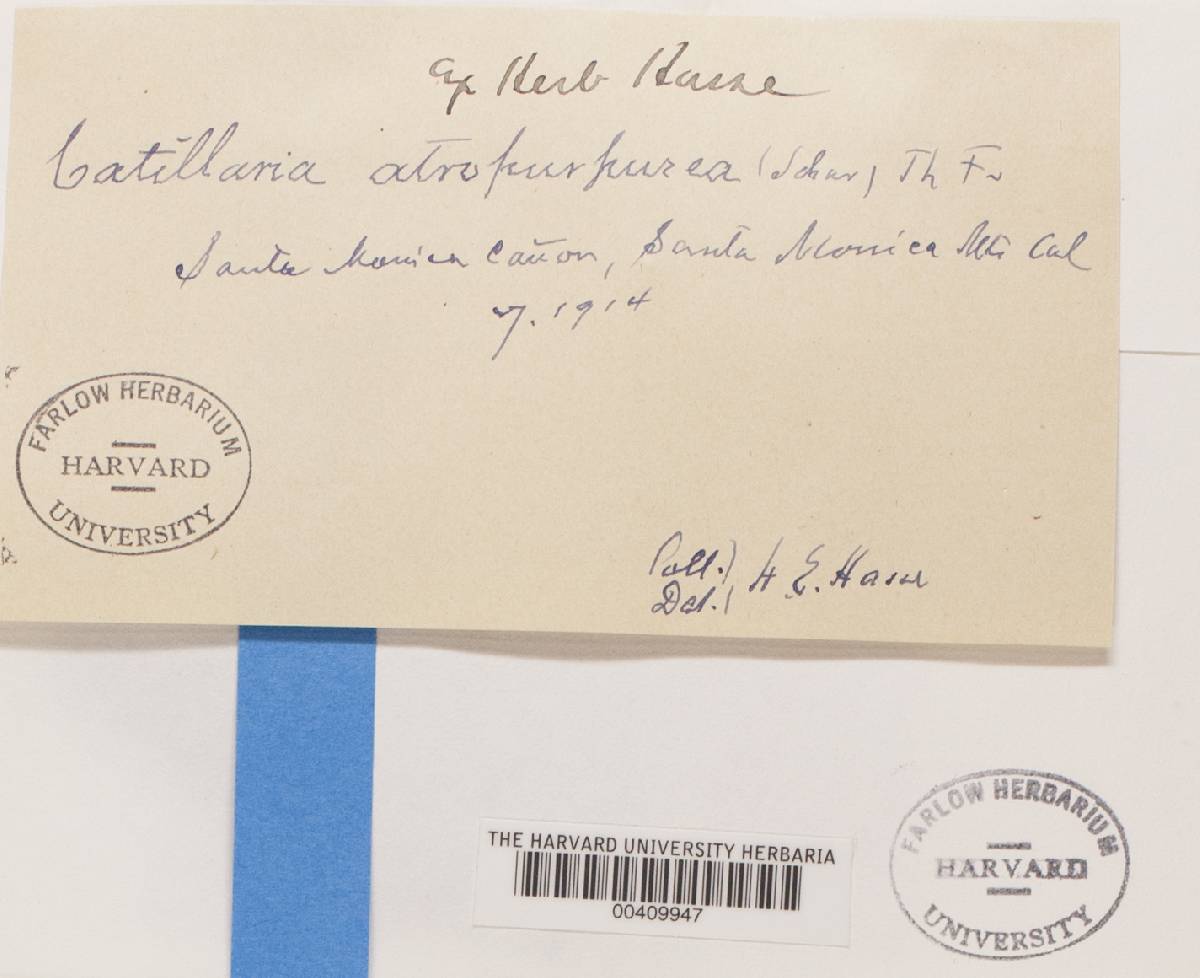 Ex Herb Hasse
Catillaria atropurpurea (Schaer) Th Fr
Santa Monica Cañon, Santa Monica Mts Cal
7. 1914
FARLOW HERBARIUM
HARVARD
UNIVERSITY
Coll.)
Det.) H. E. Hasse
THE HARVARD UNIVERSITY HERBARIA
00409947
FARLOW HERBARIUM
HARVARD
UNIVERSITY